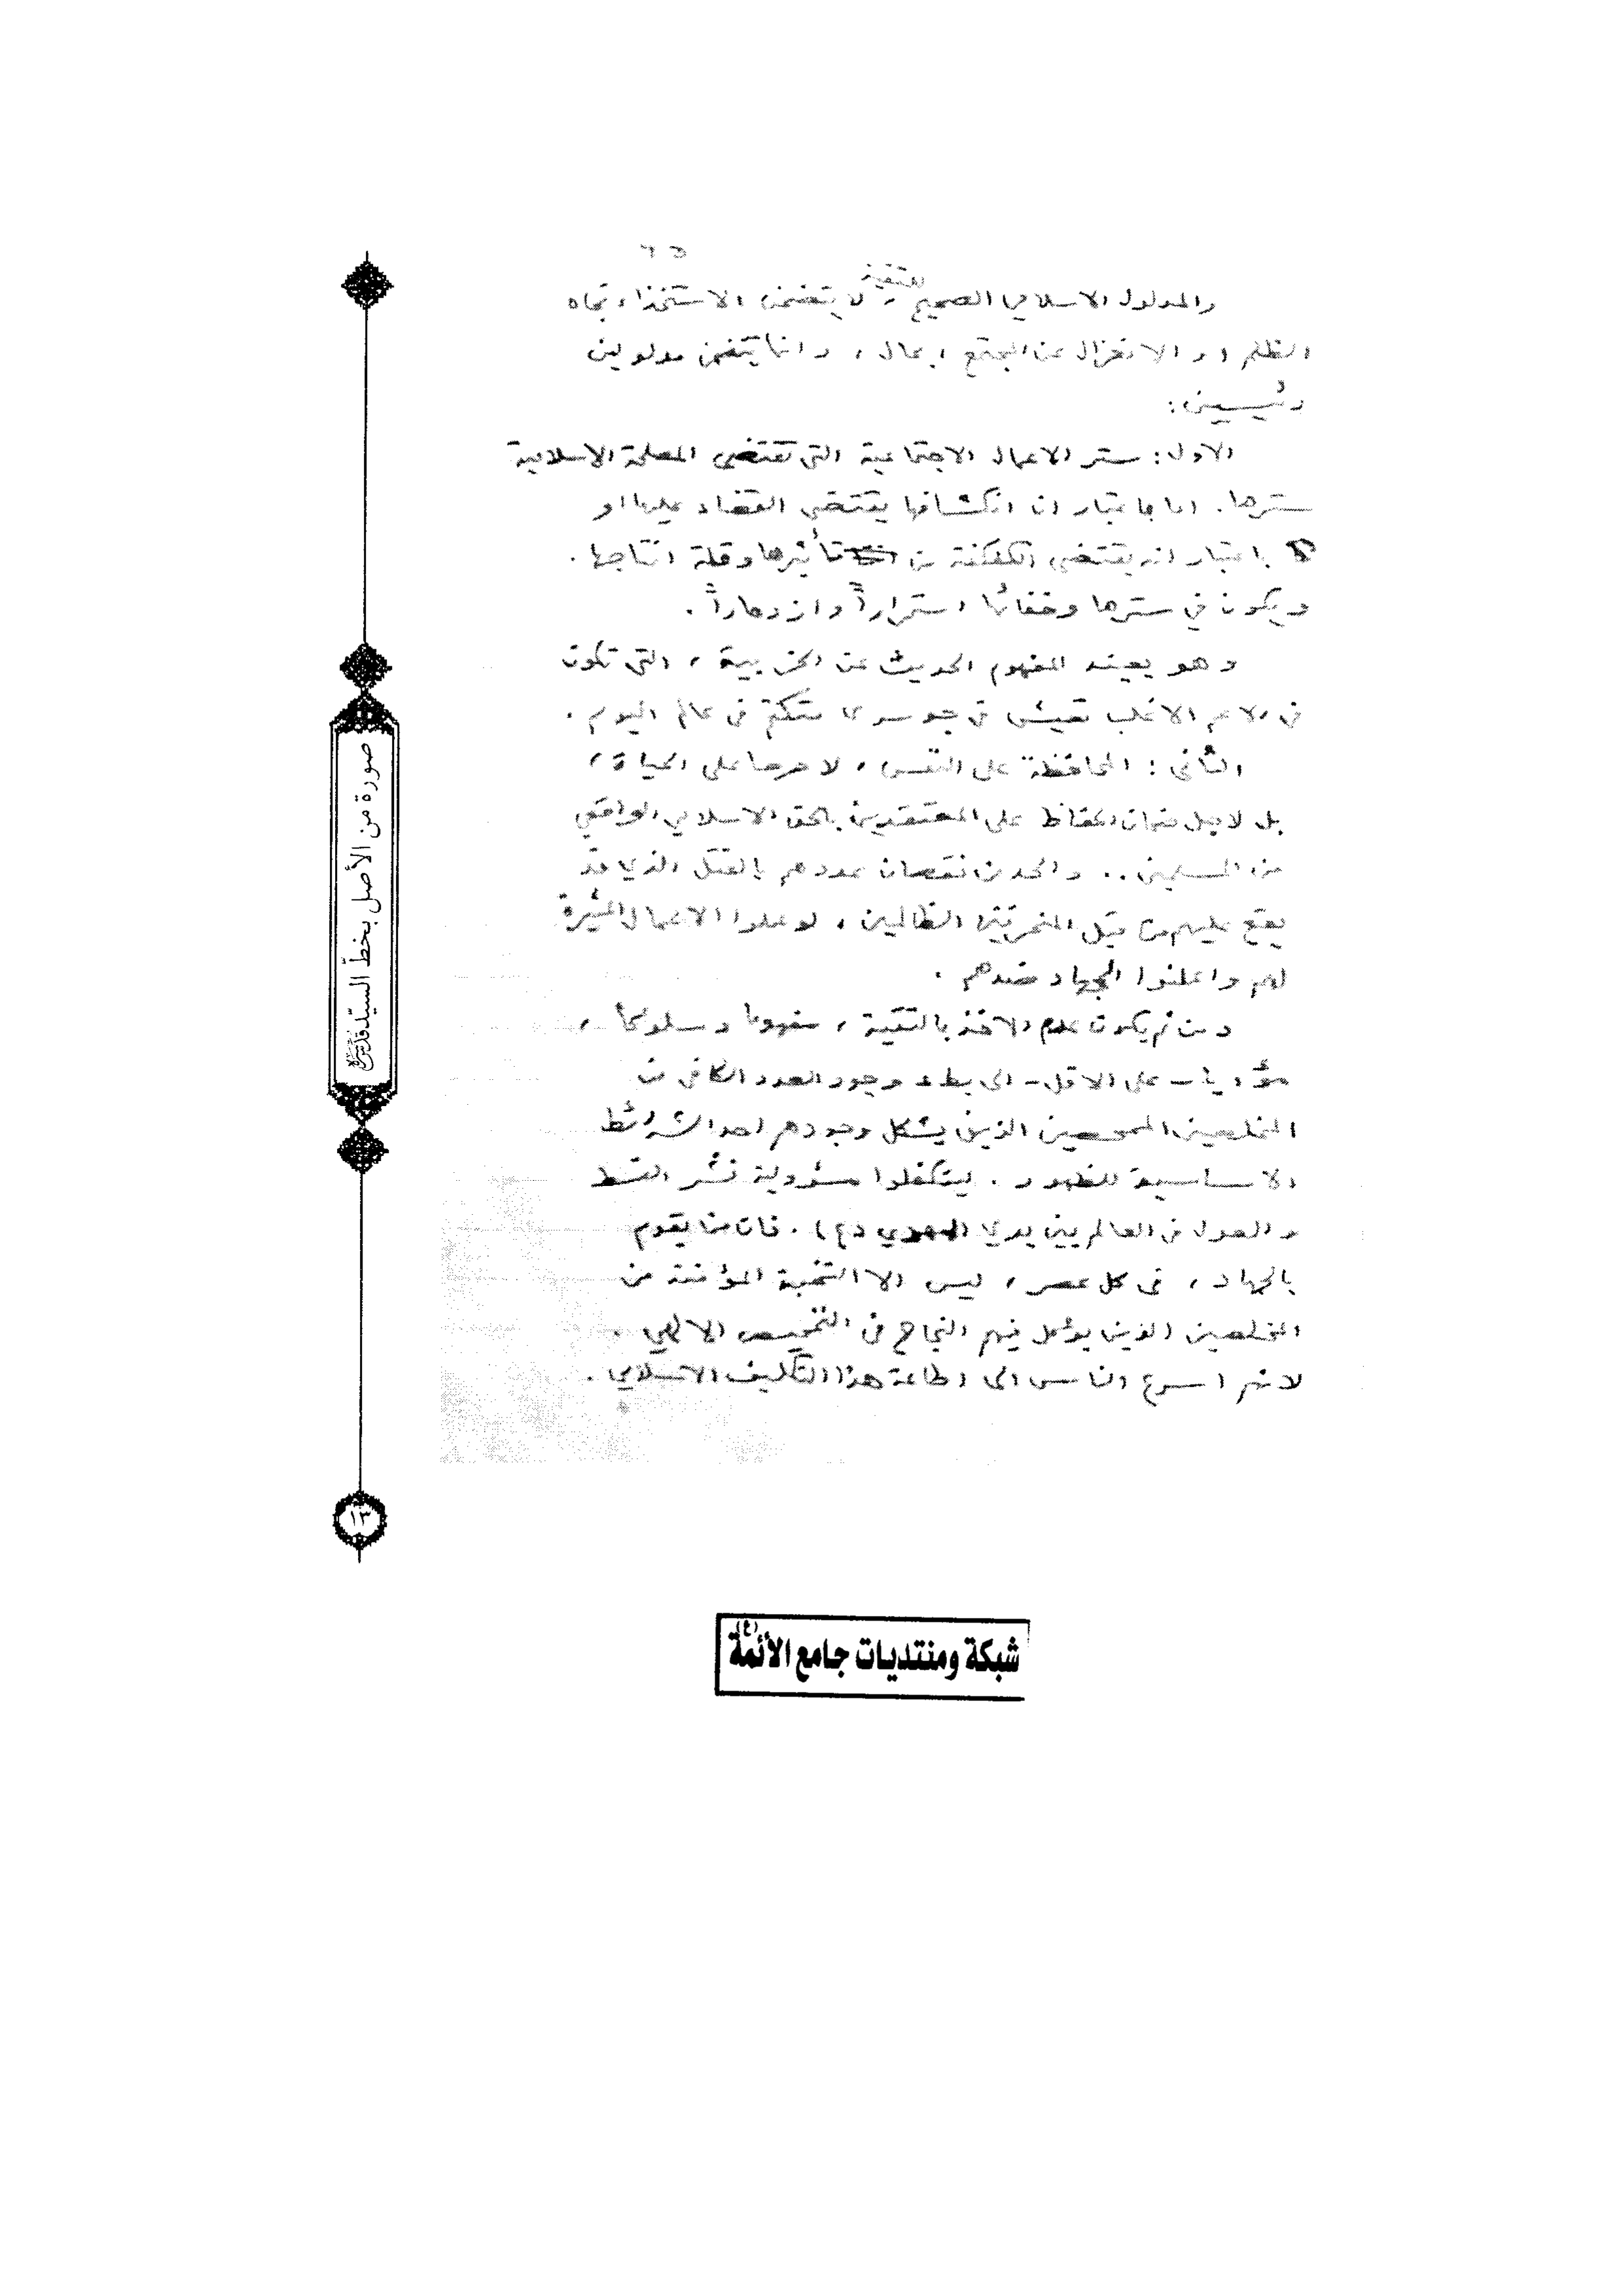 والمدلول الاسلامي الصحيح للتقية، لا يتضمن الاستخذاء تجاه
الظلم او الانعزال عن المجتمع بحال، وانما يتضمن مدلولين
رئيسين:
الاول: ستر الاعمال الاجتماعية التي تقتضي المصلحة الاسلامية
سترها. اما باعتبار ان انكشافها يقتضي القضاء عليها او
باعتبار انه يقتضي الكفكفة من تأثيرها وقلة انتاجها.
ويكون في سترها وخفائها استمراراً وازدهاراً.
وهو بعينه المفهوم الحديث عن الحزبية، التي تكون
في الاعم الاغلب تعيش في جو سري متكتم في عالم اليوم.
الثاني: المحافظة على النفس، لا حرصا على الحياة،
بل لاجل ضمان الحفاظ على المعتقدين بالحق الاسلامي الواقعي
من المسلمين.. والحد من نقصان عددهم بالقتل الذي قد
يقع عليهم من قبل المنحرفين الظالمين، لو عملوا الاعمال المثيرة
لهم واعلنوا الجهاد ضدهم.
ومن ثم يكون عدم الاخذ بالتقية، مفهوما وسلوكا،
مؤديا - على الاقل - الى بطء وجود العدد الكافي من
المخلصين الممحصين الذين يشكل وجودهم احد الشرائط
الاساسية للظهور. ليتكفلوا مسؤولية نشر القسط
والعدل في العالم بين يدي المهدي (ع). فان من يقوم
بالجهاد، في كل عصر، ليس الا النخبة المؤمنة من
المخلصين الذين يؤمل فيهم النجاح في التمحيص الالهي.
لانهم اسرع الناس الى اطاعة هذا التكليف الاسلامي.
صورة من الأصل بخطّ السيّد
١٣
شبكة ومنتديات جامع الأئمة (ع)